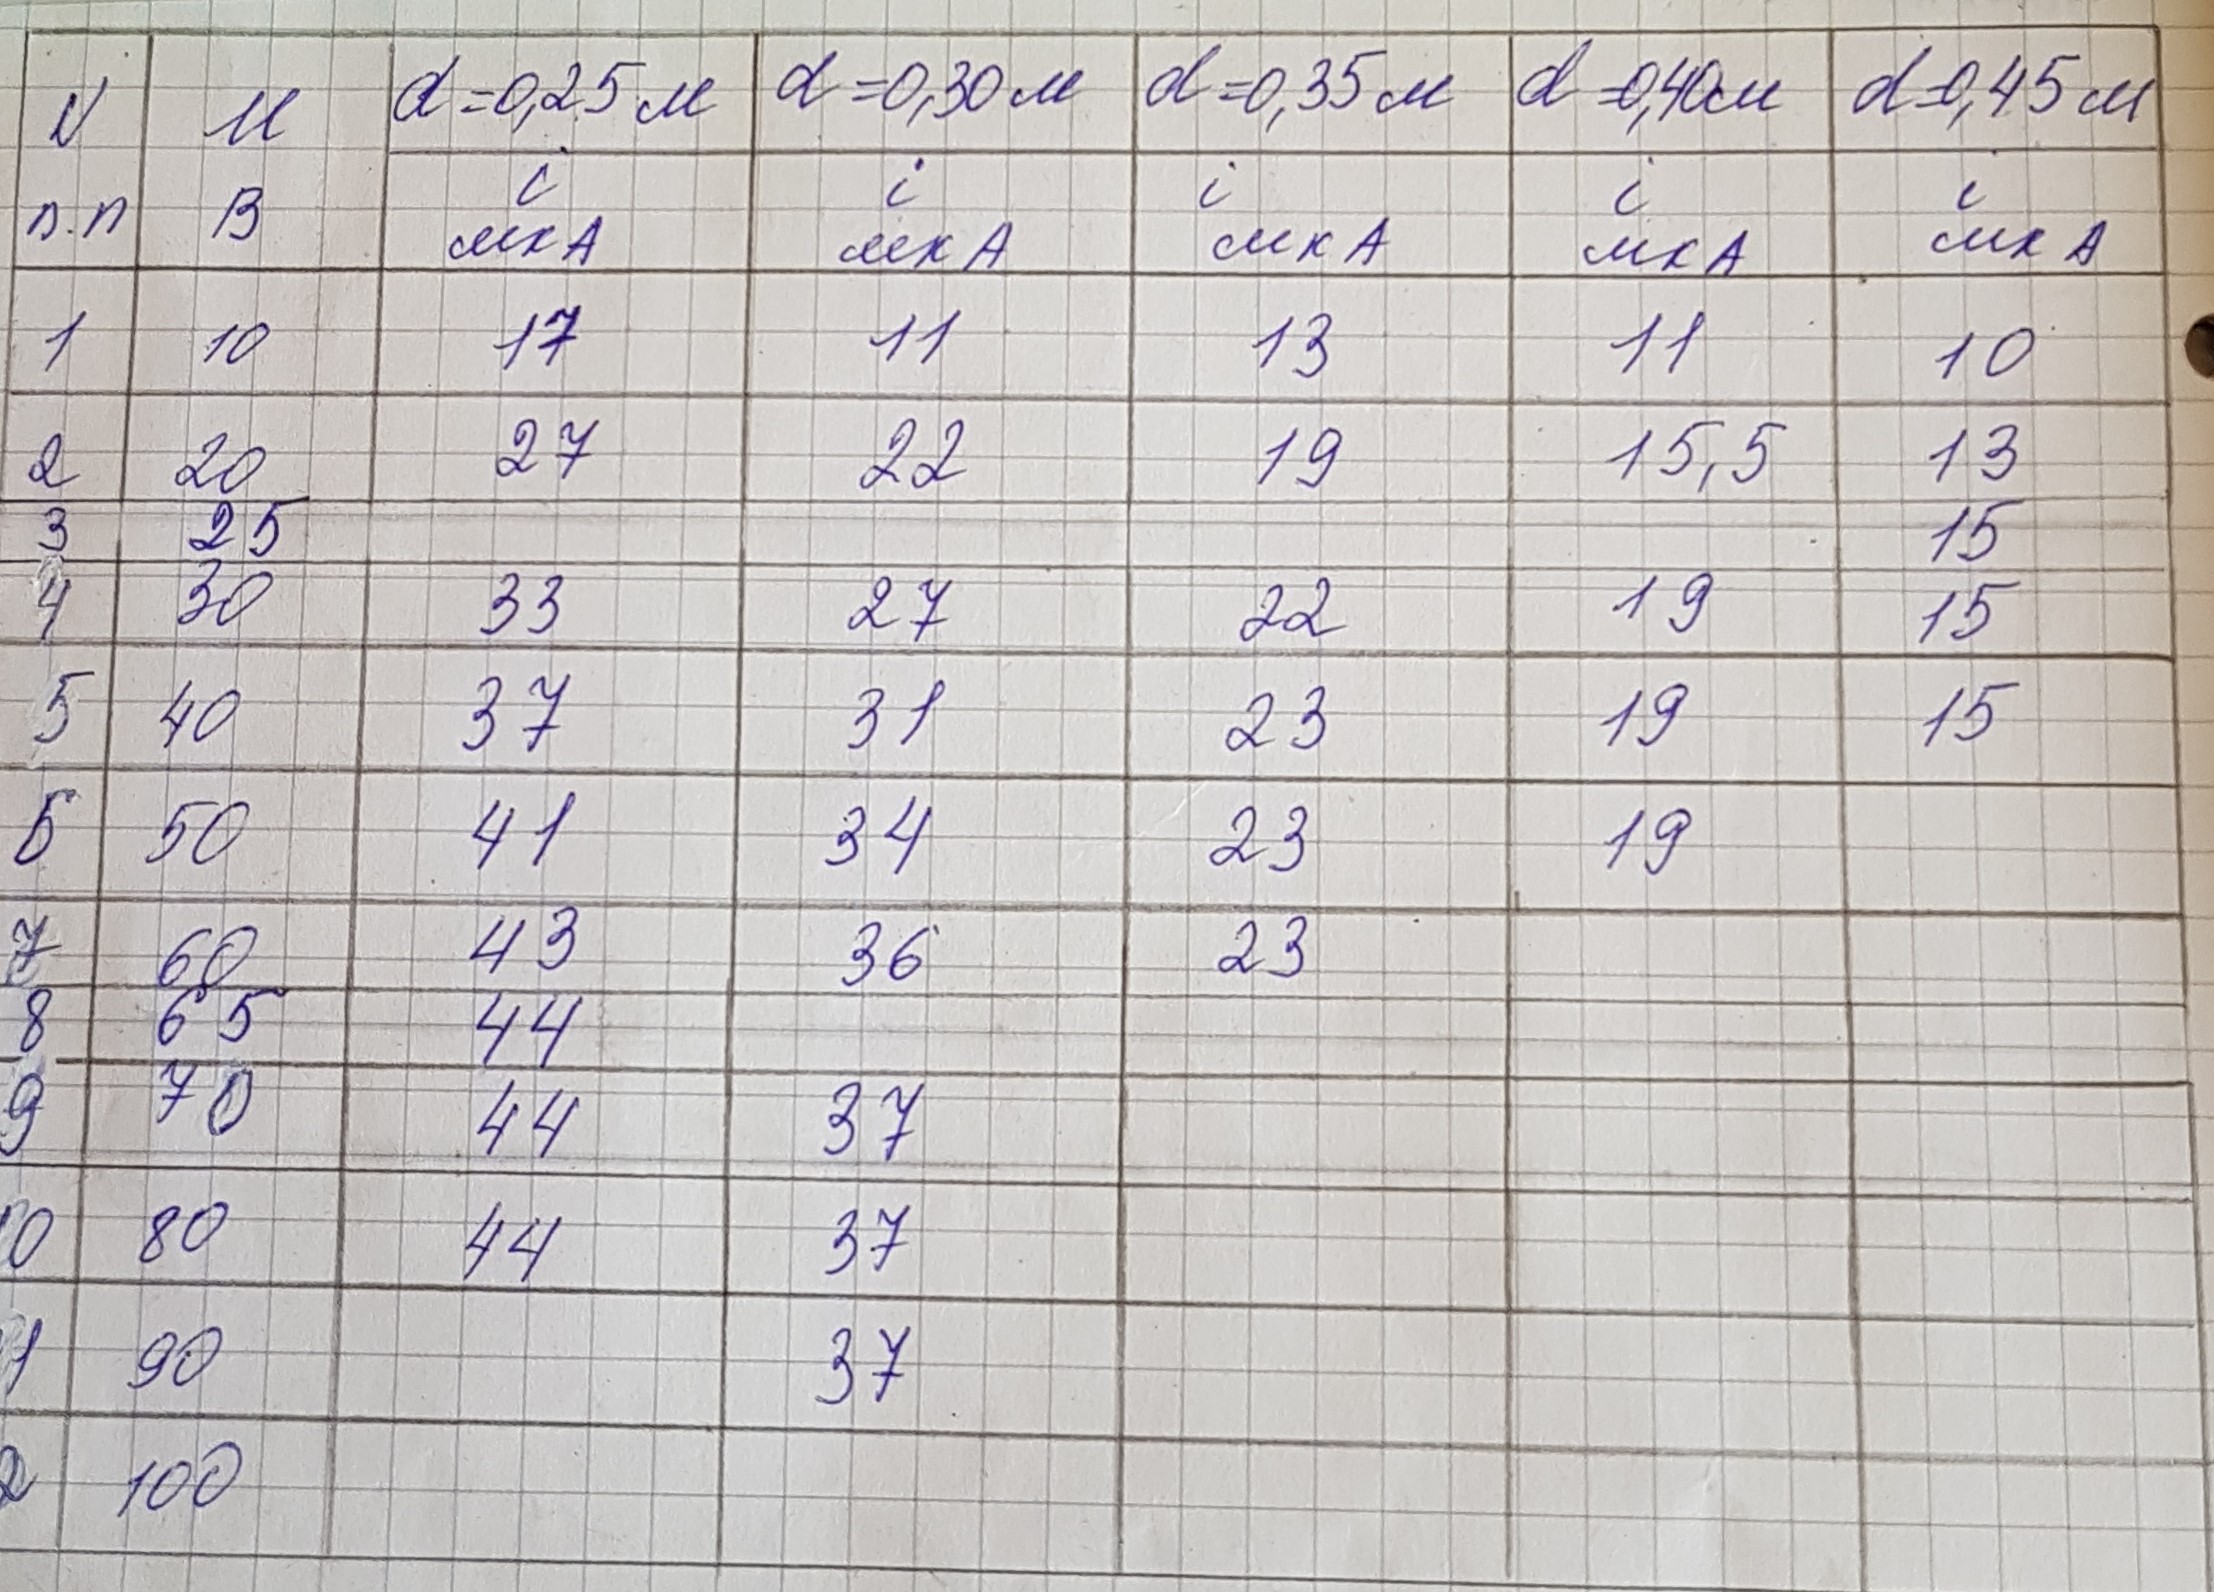 N U d=0,25 м d=0,30 м d=0,35 м d=0,40 м d=0,45 м
п.п В i мкА i мкА i мкА i мкА i мкА
1 10 17 11 13 11 10
2 20 27 22 19 15,5 13
3 25 15
4 30 33 27 22 19 15
5 40 37 31 23 19 15
6 50 41 34 23 19
7 60 43 36 23
8 65 44
9 70 44 37
10 80 44 37
11 90 37
2 100